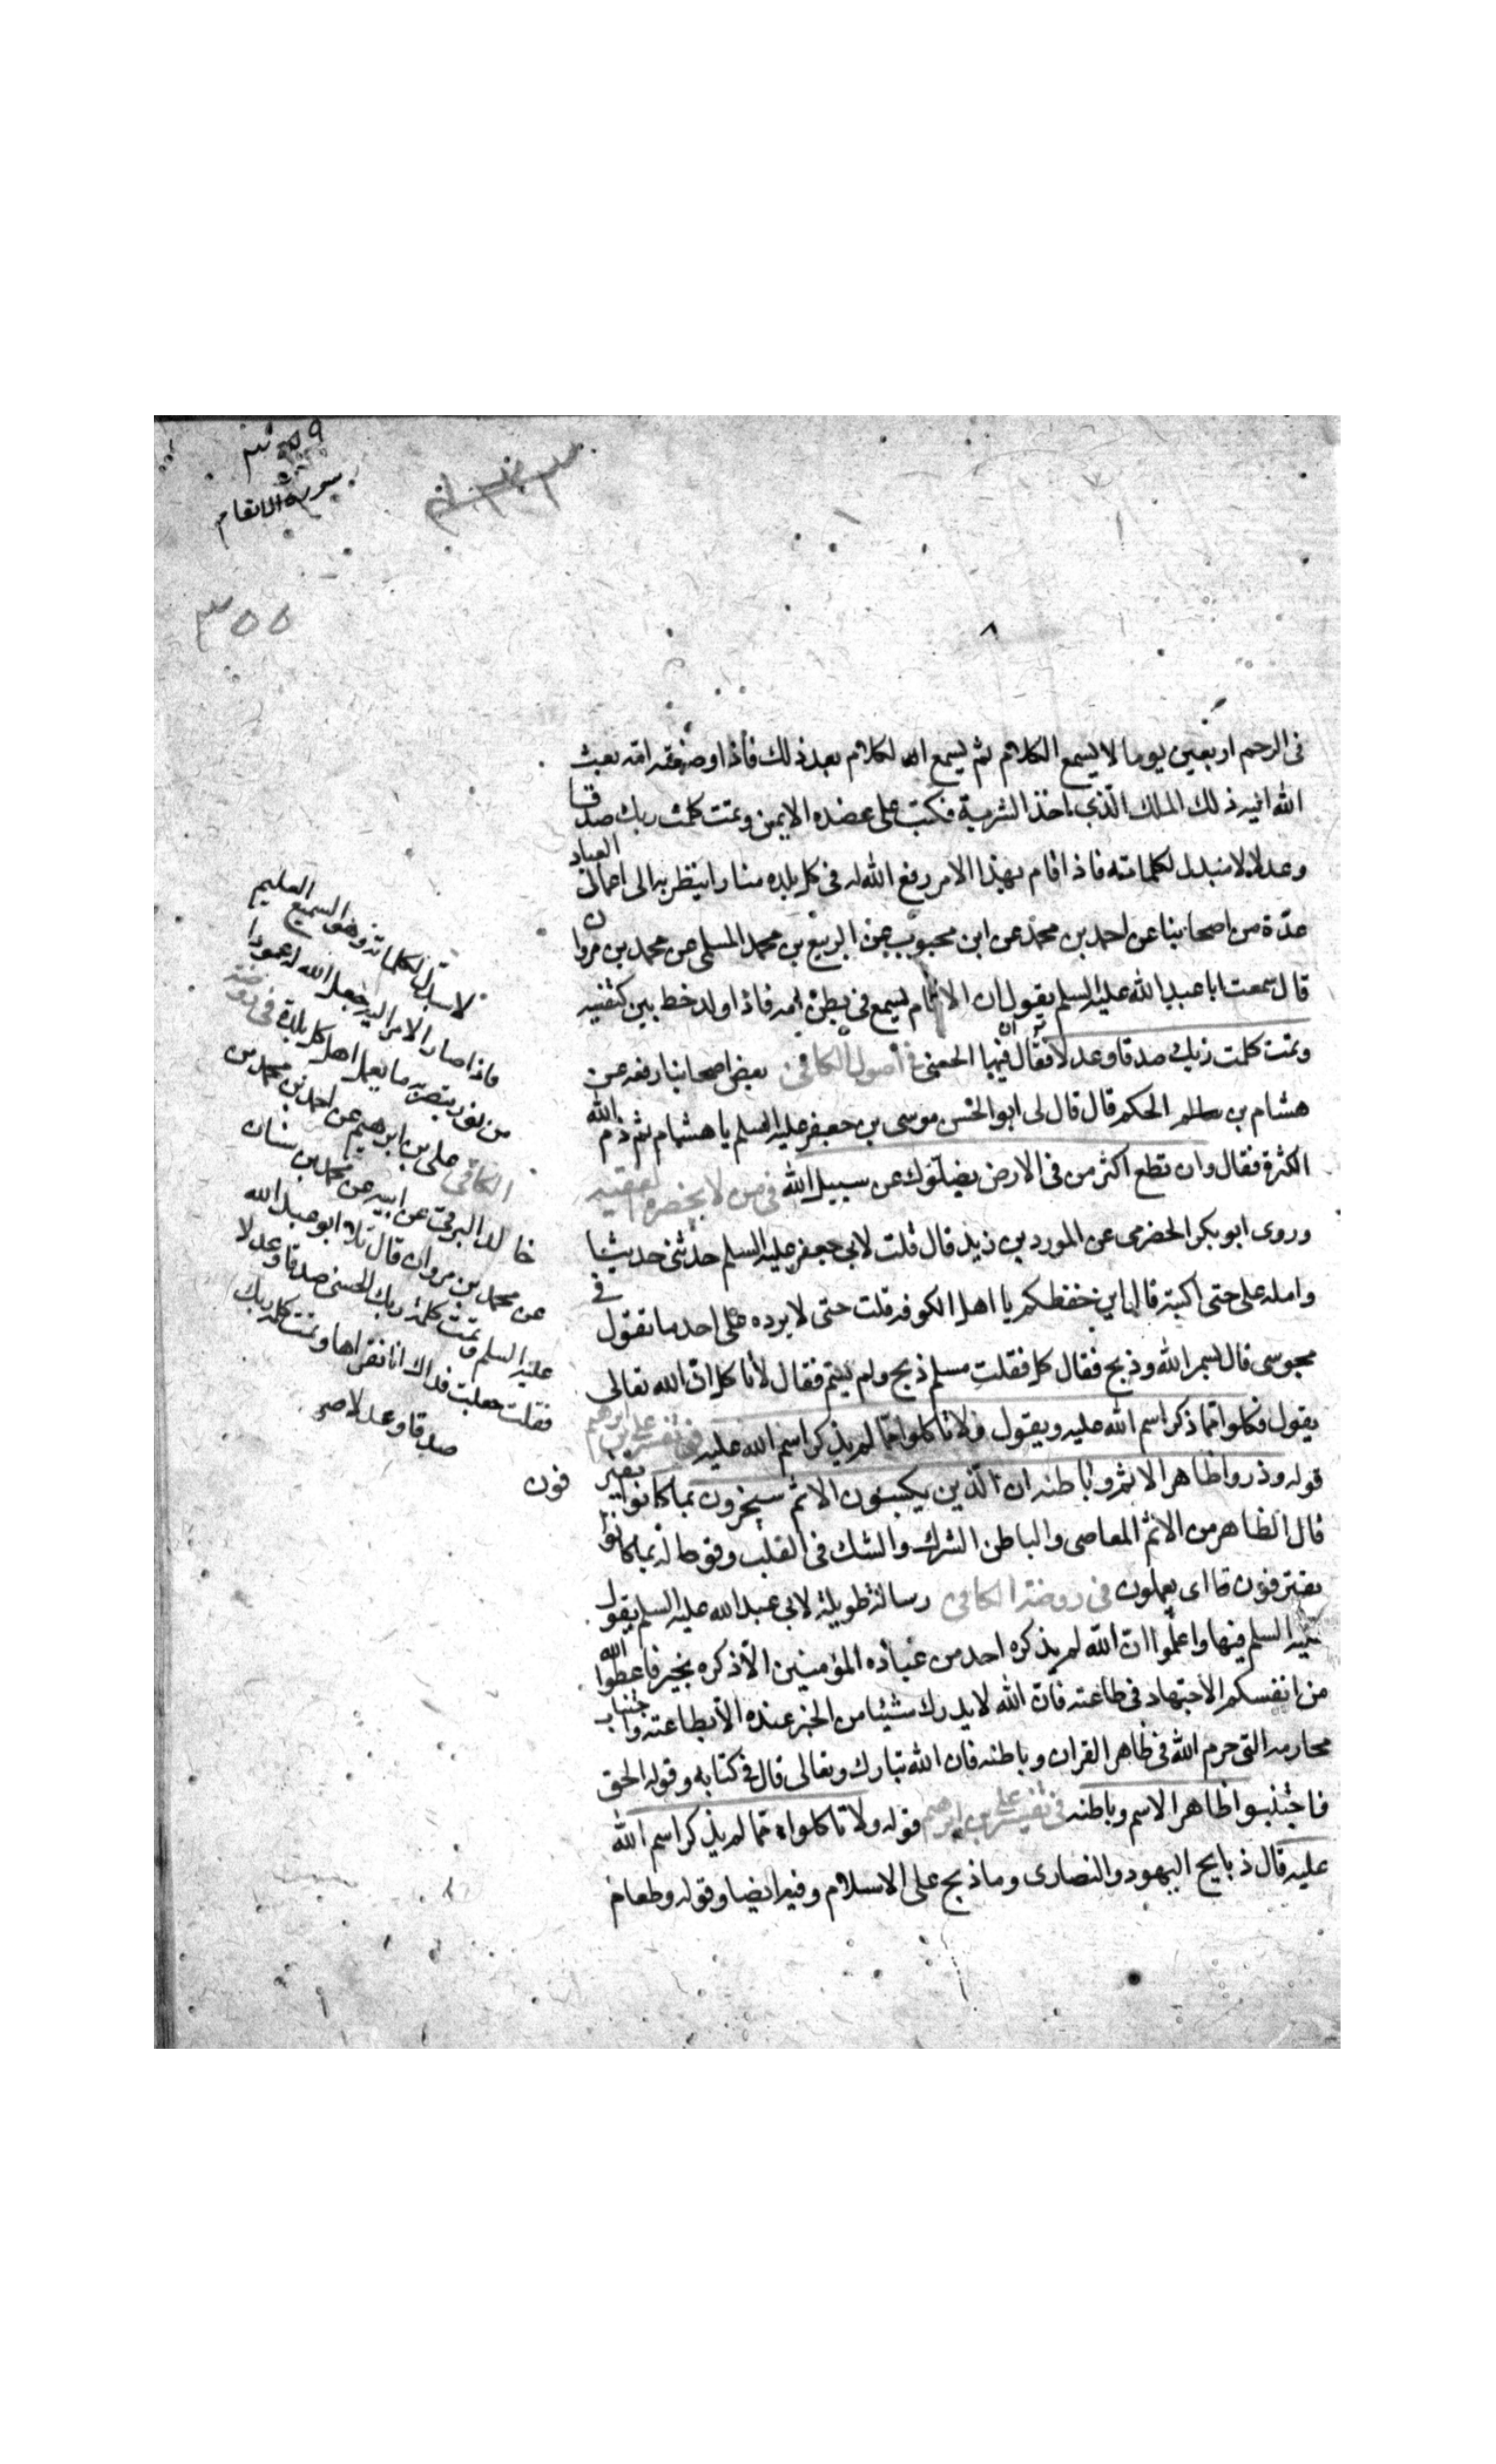 سورة الانعام
٣٥٥
فى الرحم اربعين يوما لا يسمع الكلام ثم يسمع الكلام بعد ذلك فأذا وضعته امه بعث
الله اليه ذلك الملك الذى اخذ الشربة فكتب على عضده الايمن وتمت كلمت ربك صدقا
وعدلا لا مبدل لكلماته فاذا قام بهذا الامر رفع الله له فى كل بلده منارا ينظر به الى اعمال العباد
عدّة من اصحابنا عن احمد بن محمّد عن ابن محبوب عن الربيع بن محمد المسلى عن محمد بن مروان
قال سمعت ابا عبد الله عليه السلم يقول ان الامام ليسمع فى بطن امه فاذا ولد خط بين كتفيه
وتمت كلمت ربك صدقا وعدلا فى أصول الكافى بعض اصحابنا رفعه عن
هشام بن الحكم قال قال لى ابو الحسن موسى بن جعفر عليه السلم يا هشام ثم ذم الله
الكثرة فقال وان تطع اكثر من فى الارض يضلّوك عن سبيل الله فى من لا يحضره الفقيه
وروى ابو بكر الحضرمى عن المورد بن زيد قال قلت لابى جعفر عليه السلم حدّثنى حديثا
وامله على حتى اكتبه قال اين حفظكم يا اهل الكوفه قلت حتى لا يرده علىّ احد ما تقول فى
مجوسى قال بسم الله وذبح فقال كل فقلت مسلم ذبح ولم يسّم فقال لا تأكل انّ الله تعالى
يقول فكلوا ممّا ذكر اسم الله عليه ويقول ولا تاكلوا ممّا لم يذكر اسم الله عليه فى تفسير على بن ابرهيم
قوله وذروا ظاهر الاثم وباطنه ان الّذين يكسبون الاثم سيجزون بما كانوا يقتر
فون
قال الظاهر من الاثم المعاصى والباطن الشرك والشك فى القلب وقوله بما كانوا
يقترفون اى يعملون فى روضة الكافى رسالة طويلة لابى عبد الله عليه السلم يقول
عليه السلم فيها واعلموا ان الله لم يذكره احد من عباده المؤمنين الّا ذكره بخير فاعطوا الله
من انفسكم الاجتهاد فى طاعته فانّ الله لا يدرك شيئا من الخير عنده الّا بطاعته واجتناب
محارمه التى حرم الله فى ظاهر القران وباطنه فان الله تبارك وتعالى قال فى كتابه وقوله الحق
فاجتنبوا ظاهر الاسم وباطنه فى تفسير على بن ابرهيم قوله ولا تاكلوا ممّا لم يذكر اسم الله
عليه قال ذبايح اليهود والنصارى وما ذبح على الاسلام وفيه ايضا وقوله وطعام
لا مبدّل لكلماته وهو السميع العليم
فاذا صار الامر اليه جعل الله له عمودا
من نور يبصر به ما يعمل اهل كل بلدة فى روضة
الكافى على بن ابرهيم عن احمد بن محمد بن
خالد البرقى عن ابيه عن محمد بن سنان
عن محمد بن مروان قال تلا ابو عبد الله
عليه السلم وتمت كلمة ربك الحسنى صدقا وعدلا
فقلت جعلت فداك انا نقراها وتمت كلمة ربك
صدقا وعدلا